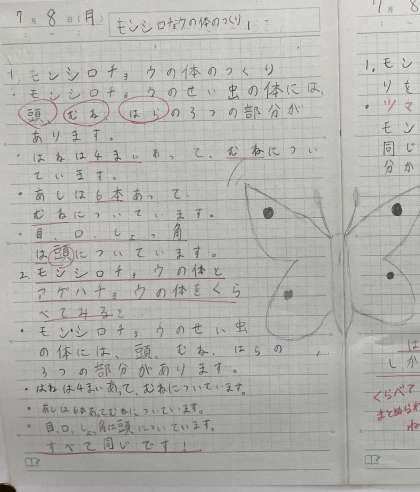 7月8日(月)
モンシロチョウの体のつくり
1. モンシロチョウの体のつくり
・モンシロチョウのせい虫の体には、
頭、むね、はらの3つの部分が
あります。
・はねは4まいあって、むねについ
ています。
・あしは6本あって
むねについています。
・目、口、しょっ角
は頭についています。
2. モンシロチョウの体と
アゲハチョウの体をくら
べてみると
・モンシロチョウのせい虫
の体には、頭、むね、はらの
3つの部分があります。
・はねは4まいあって、むねについています。
・あしは6本あってむねについています。
・目、口、しょっ角は頭についています。
すべて同じです!
7月8
1. モン
りを
・ツマ
モン
同じ
分か
は
しか
くらべて
まとめられ
ね